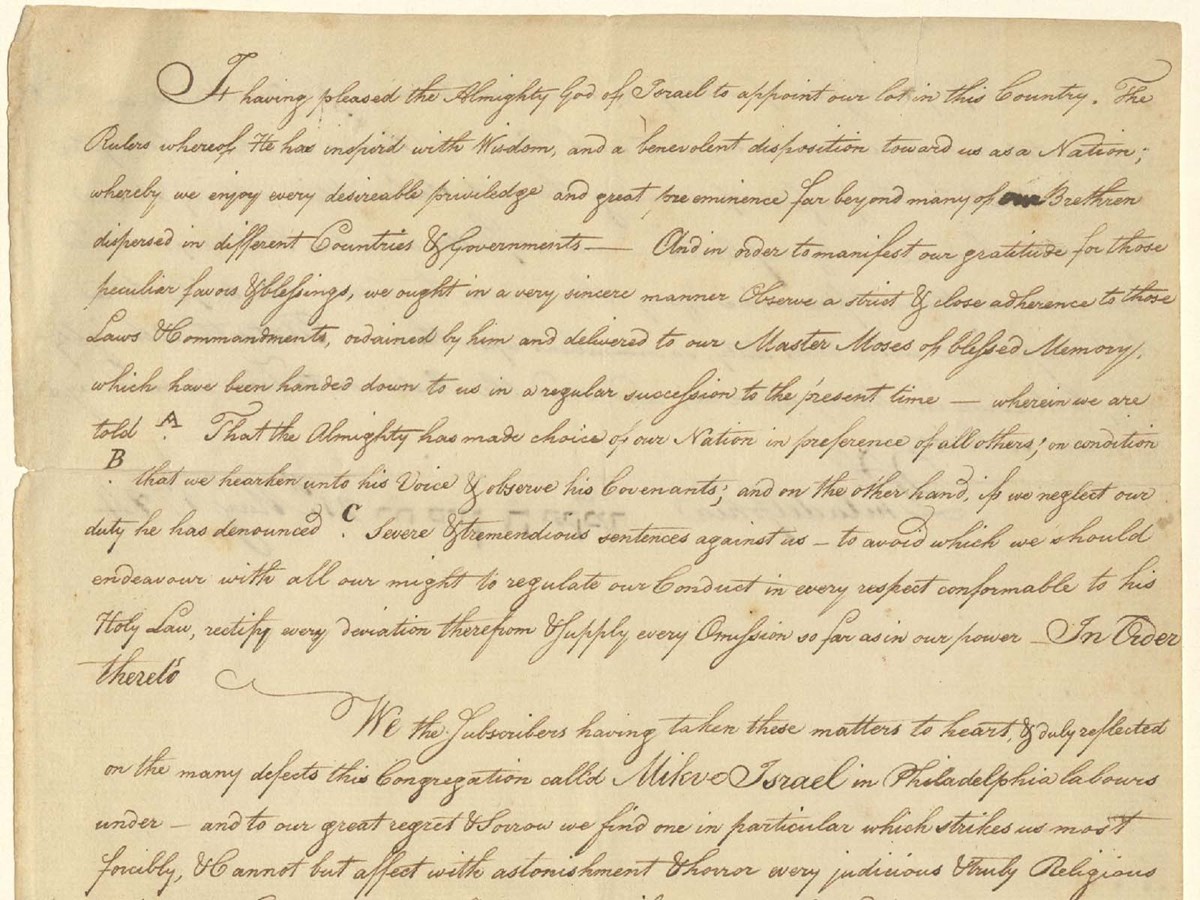 It having pleased the Almighty God of Israel to appoint our lot in this Country. The
Rulers whereof He has inspird with Wisdom, and a benevolent disposition toward us as a Nation;
whereby we enjoy every desireable priviledge and great pre eminence far beyond many of our Brethren
dispersed in different Countries & Governments — And in order to manifest our gratitude for those
peculiar favors & blessings, we ought in a very sincere manner Observe a strict & close adherence to those
Laws & Commandments, ordained by him and delivered to our Master Moses of blessed Memory,
which have been handed down to us in a regular succession to the present time — wherein we are
told A. That the Almighty has made choice of our Nation in preference of all others; on condition
B. that we hearken unto his Voice & observe his Covenants; and on the other hand, if we neglect our
duty he has denounced C. Severe & tremendious sentences against us — to avoid which we should
endeavour with all our might to regulate our Conduct in every respect conformable to his
Holy Law, rectify every deviation therefrom & supply every Omission so far as in our power — In Order
thereto
We the Subscribers having taken these matters to heart, & duly reflected
on the many defects this Congregation calld Mikve Israel in Philadelphia labours
under — and to our great regret & Sorrow we find one in particular which strikes us most
forcibly, & Cannot but affect with astonishment & horror every judicious & truly Religious